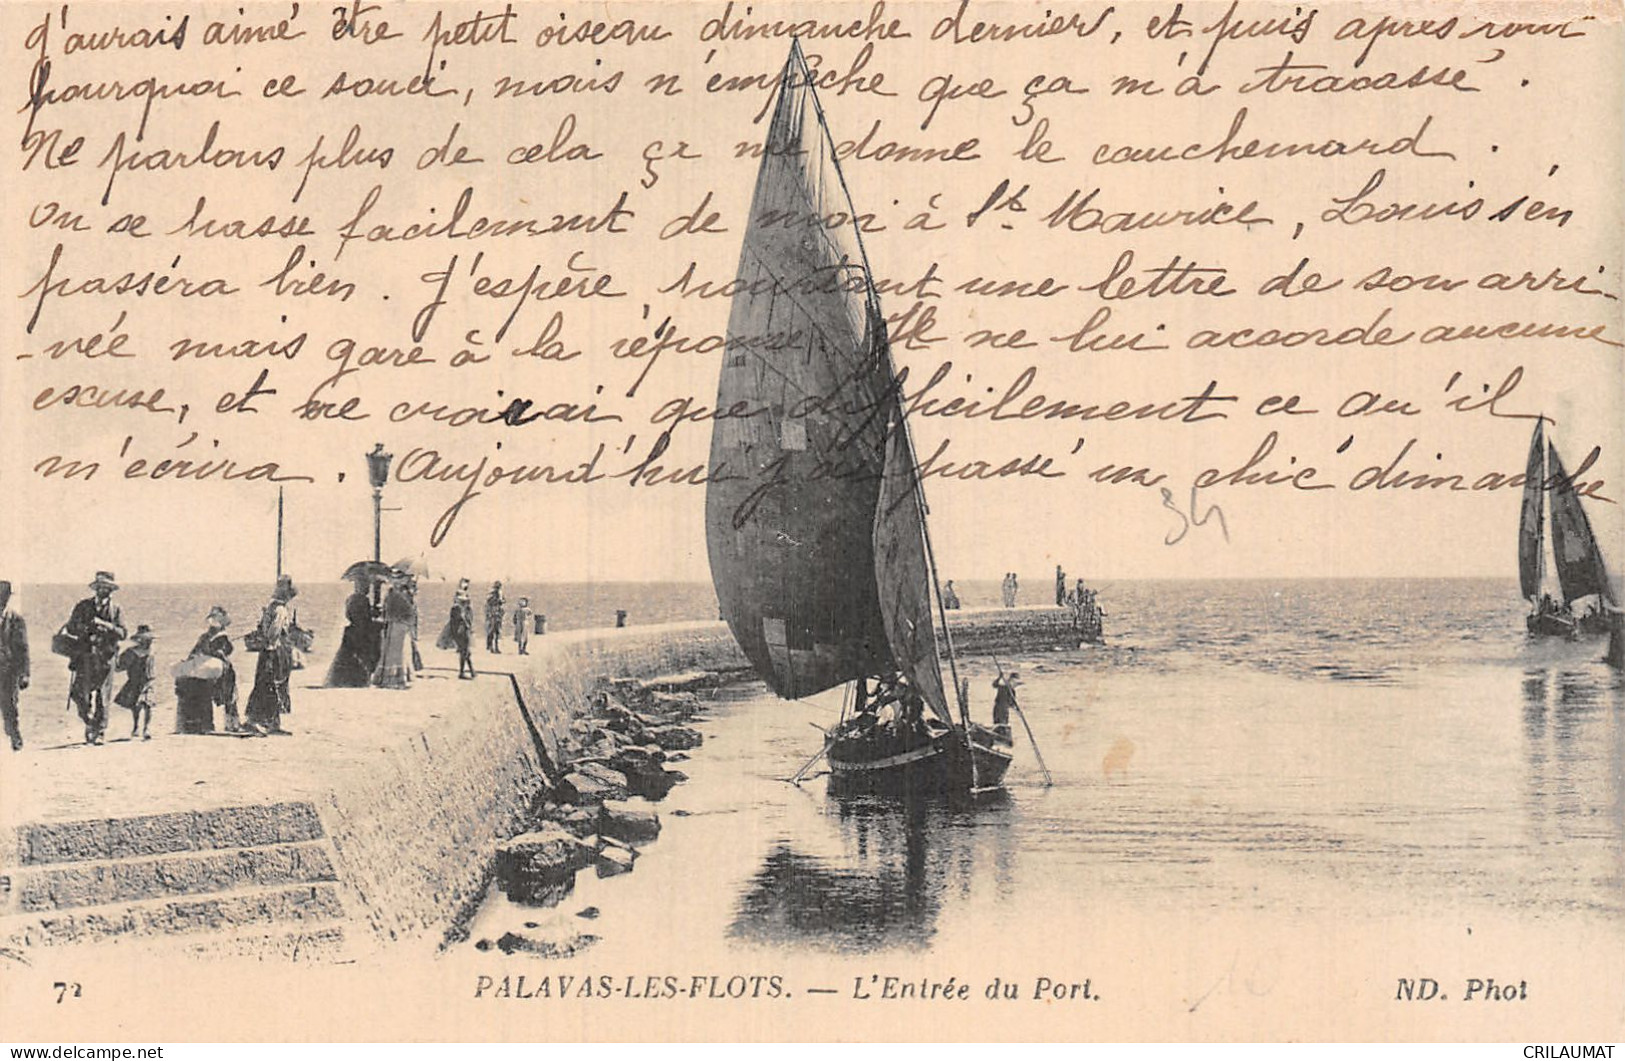 J'aurais aimé être petit oiseau dimanche dernier, et puis après tout
pourquoi ce souci, mais n'empêche que ça m'a tracassé.
Ne parlons plus de cela ça me donne le cauchemard.
On se passe facilement de moi à St. Maurice, Louis s'en
passéra bien. J'espère pourtant une lettre de son arri-
-vée mais gare à la réponse. Je ne lui accorde aucune
excuse, et ne croirai que difficilement ce qu'il
m'écrira. Aujourd'hui j'ai passé un chic dimanche
34
72 PALAVAS-LES-FLOTS. — L'Entrée du Port. ND. Phot
CRILAUMAT